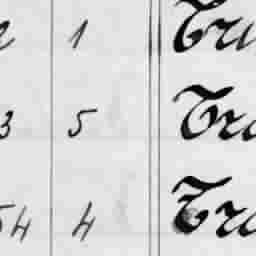 2 1 Tru
3 5 Tra
54 4 Tra